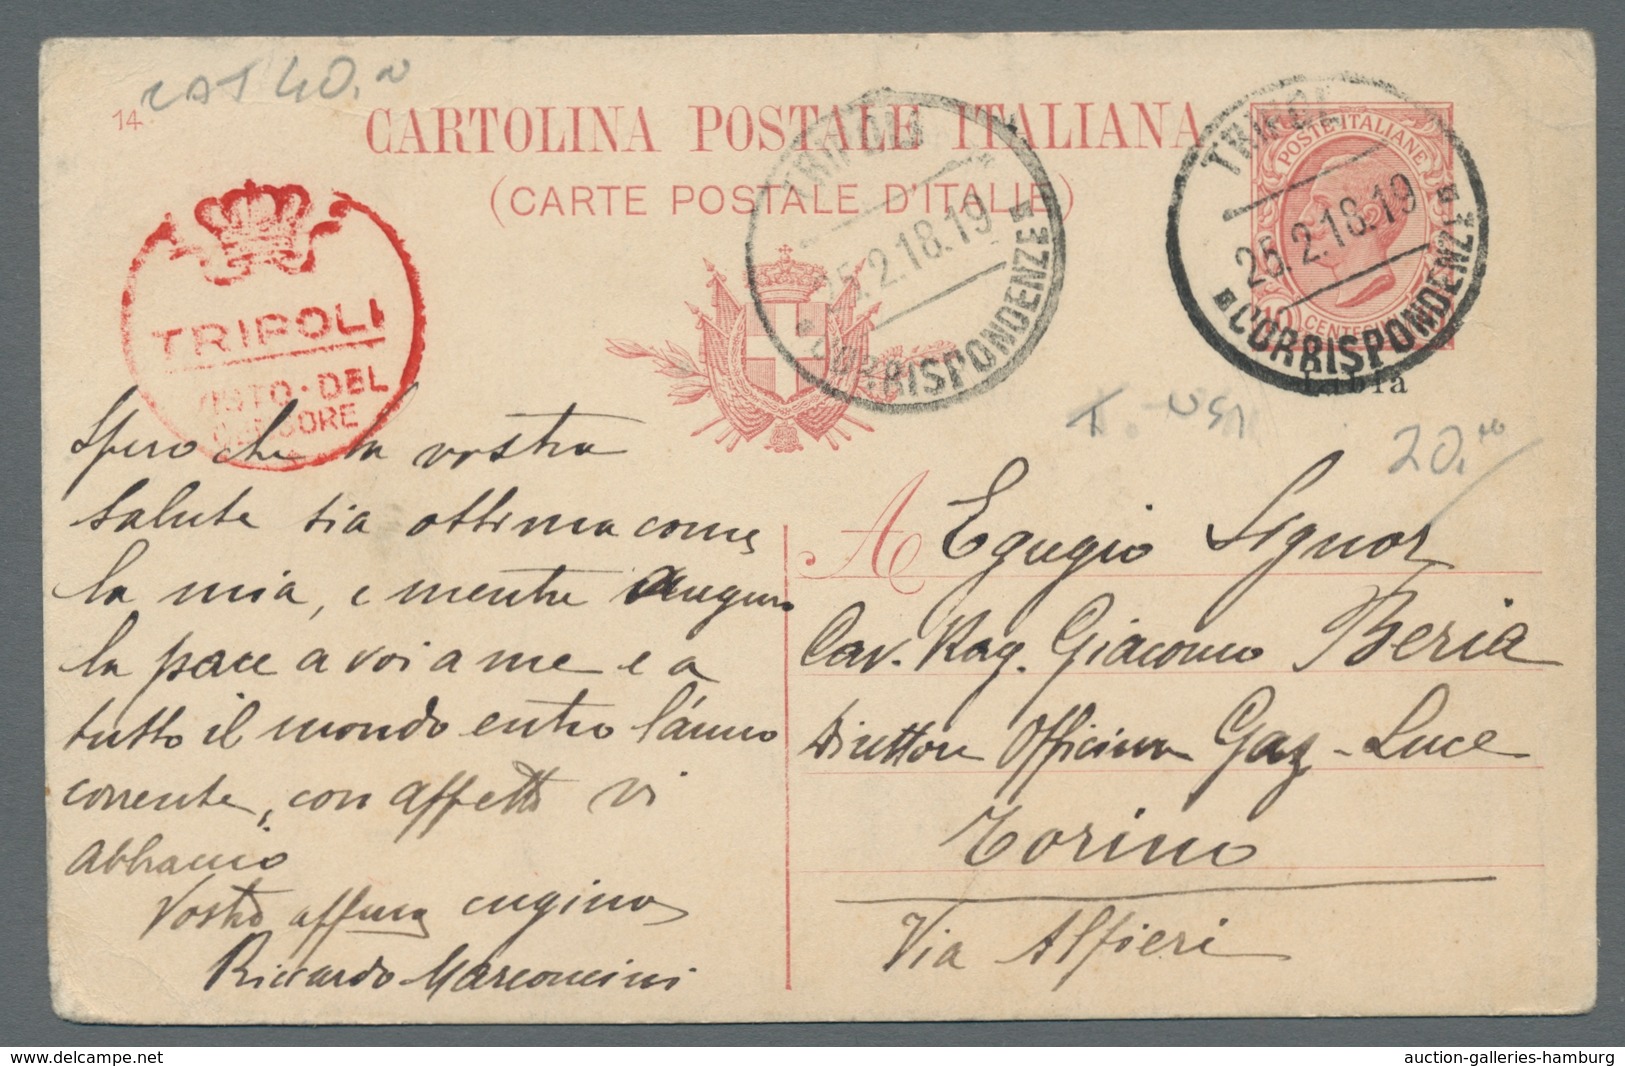 CAT 40.-
14
CARTOLINA POSTALE ITALIANA
(CARTE POSTALE D'ITALIE)
TRIPOLI
25.2.18.19
CORRISPONDENZE
TRIPOLI
25.2.18.19
CORRISPONDENZE
POSTE ITALIANE
10 CENTESIMI
Libia
TRIPOLI
VISTO · DEL
CENSORE
20.-
Spero che la vostra
salute sia ottima come
la mia, e mentre auguro
la pace a voi a me e a
tutto il mondo entro l'anno
corrente, con affetto vi
abbraccio
Vostro affmo cugino
Riccardo Marconcini
A Egregio Signor
Cav. Rag. Giacomo Beria
Direttore Officina Gaz-Luce
Torino
Via Alfieri
auction-galleries-hamburg